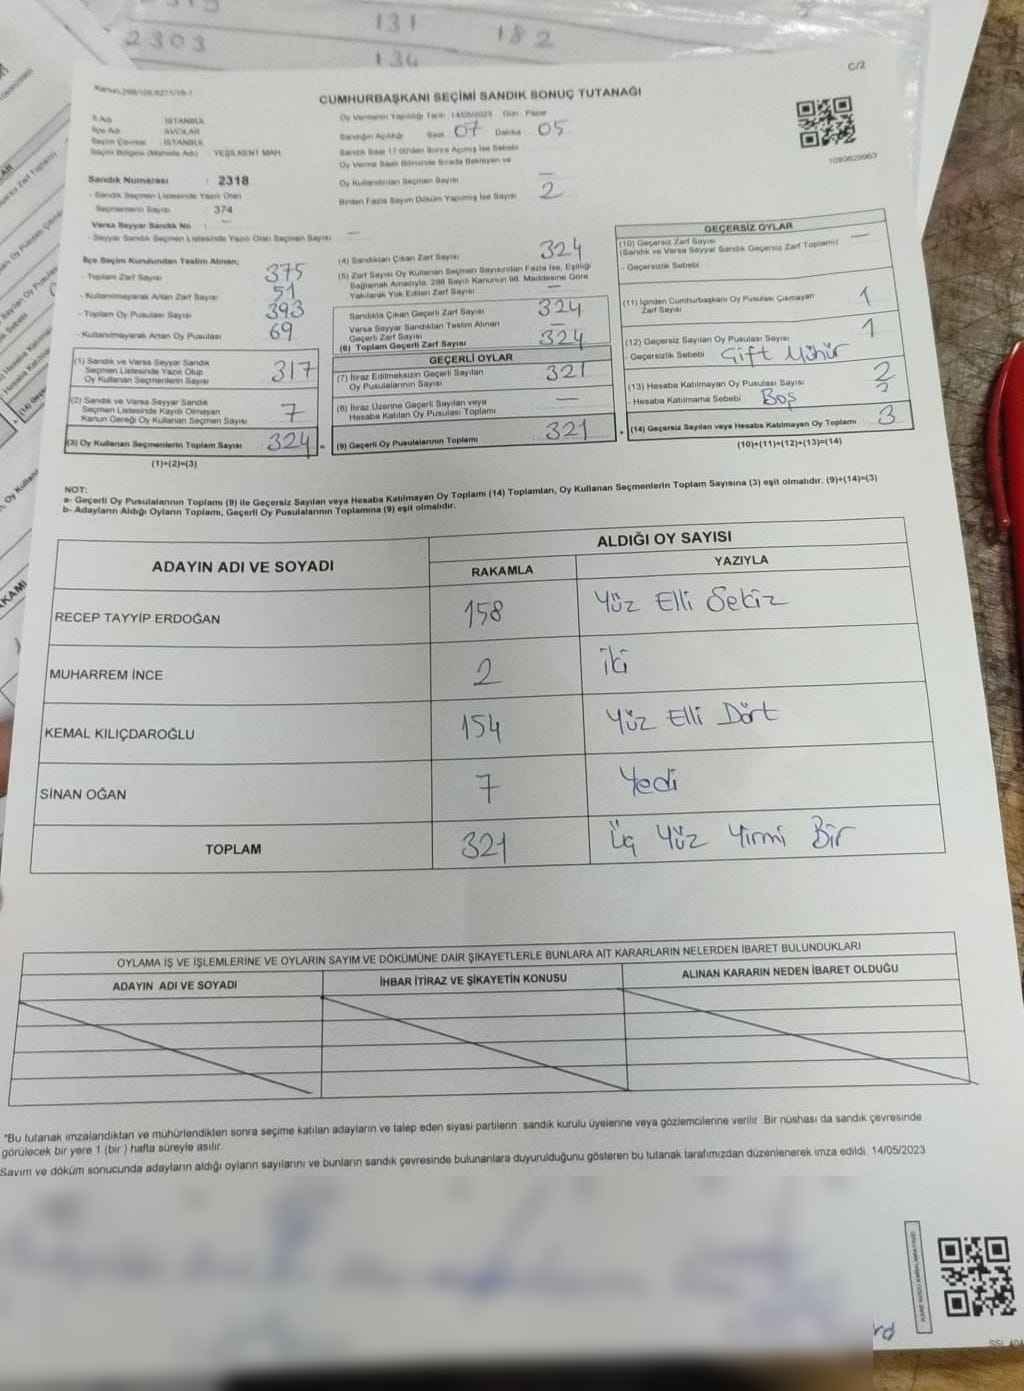 2303
131
182
134
C/2
CUMHURBAŞKANI SEÇİMİ SANDIK SONUÇ TUTANAĞI
İl Adı : İSTANBUL
İlçe Adı : AVCILAR
Seçim Çevresi : İSTANBUL
Seçim Bölgesi (Mahalle Adı) : YEŞİLKENT MAH.
Oy Vermenin Yapıldığı Tarih : 14/05/2023 Gün : Pazar
Sandığın Açıldığı Saat 07 Dakika 05
Sandık Saat 17.00'den Sonra Açılmış İse Sebebi
Oy Verme Saati Bitiminde Sırada Bekleyen ve
Oy Kullandırılan Seçmen Sayısı —
Birden Fazla Sayım Döküm Yapılmış İse Sayısı 2
Sandık Numarası : 2318
- Sandık Seçmen Listesinde Yazılı Olan
Seçmenlerin Sayısı : 374
Varsa Seyyar Sandık No : —
- Seyyar Sandık Seçmen Listesinde Yazılı Olan Seçmen Sayısı : —
İlçe Seçim Kurulundan Teslim Alınan;
- Toplam Zarf Sayısı 375
- Kullanılmayarak Artan Zarf Sayısı 51
- Toplam Oy Pusulası Sayısı 393
- Kullanılmayarak Artan Oy Pusulası 69
(1) Sandık ve Varsa Seyyar Sandık
Seçmen Listesinde Yazılı Olup
Oy Kullanan Seçmenlerin Sayısı 317
(2) Sandık ve Varsa Seyyar Sandık
Seçmen Listesinde Kayıtlı Olmayan
Kanun Gereği Oy Kullanan Seçmen Sayısı 7
(3) Oy Kullanan Seçmenlerin Toplam Sayısı 324 =
(1)+(2)=(3)
(4) Sandıktan Çıkan Zarf Sayısı 324
(5) Zarf Sayısı Oy Kullanan Seçmen Sayısından Fazla İse, Eşitliği
Sağlamak Amacıyla, 298 Sayılı Kanunun 98. Maddesine Göre
Yakılarak Yok Edilen Zarf Sayısı —
Sandıkta Çıkan Geçerli Zarf Sayısı 324
Varsa Seyyar Sandıktan Teslim Alınan
Geçerli Zarf Sayısı —
(6) Toplam Geçerli Zarf Sayısı 324
GEÇERLİ OYLAR
(7) İtiraz Edilmeksizin Geçerli Sayılan
Oy Pusulalarının Sayısı 321
(8) İtiraz Üzerine Geçerli Sayılan veya
Hesaba Katılan Oy Pusulası Toplamı —
(9) Geçerli Oy Pusulalarının Toplamı 321 +
GEÇERSİZ OYLAR
(10) Geçersiz Zarf Sayısı —
(Sandık ve Varsa Seyyar Sandık Geçersiz Zarf Toplamı)
- Geçersizlik Sebebi
(11) İçinden Cumhurbaşkanı Oy Pusulası Çıkmayan
Zarf Sayısı 1
(12) Geçersiz Sayılan Oy Pusulası Sayısı 1
- Geçersizlik Sebebi Çift Mühür
(13) Hesaba Katılmayan Oy Pusulası Sayısı 2
- Hesaba Katılmama Sebebi Boş 2
(14) Geçersiz Sayılan veya Hesaba Katılmayan Oy Toplamı 3
(10)+(11)+(12)+(13)=(14)
NOT:
a- Geçerli Oy Pusulalarının Toplamı (9) ile Geçersiz Sayılan veya Hesaba Katılmayan Oy Toplamı (14) Toplamları, Oy Kullanan Seçmenlerin Toplam Sayısına (3) eşit olmalıdır. (9)+(14)=(3)
b- Adayların Aldığı Oyların Toplamı, Geçerli Oy Pusulalarının Toplamına (9) eşit olmalıdır.
ADAYIN ADI VE SOYADI
ALDIĞI OY SAYISI
RAKAMLA YAZIYLA
RECEP TAYYİP ERDOĞAN 158 Yüz Elli Sekiz
MUHARREM İNCE 2 İki
KEMAL KILIÇDAROĞLU 154 Yüz Elli Dört
SİNAN OĞAN 7 Yedi
TOPLAM 321 Üç Yüz Yirmi Bir
OYLAMA İŞ VE İŞLEMLERİNE VE OYLARIN SAYIM VE DÖKÜMÜNE DAİR ŞİKAYETLERLE BUNLARA AİT KARARLARIN NELERDEN İBARET BULUNDUKLARI
ADAYIN ADI VE SOYADI İHBAR İTİRAZ VE ŞİKAYETİN KONUSU ALINAN KARARIN NEDEN İBARET OLDUĞU
*Bu tutanak imzalandıktan ve mühürlendikten sonra seçime katılan adayların ve talep eden siyasi partilerin sandık kurulu üyelerine veya gözlemcilerine verilir. Bir nüshası da sandık çevresinde
görülecek bir yere 1 (bir) hafta süreyle asılır.
Sayım ve döküm sonucunda adayların aldığı oyların sayılarını ve bunların sandık çevresinde bulunanlara duyurulduğunu gösteren bu tutanak tarafımızdan düzenlenerek imza edildi. 14/05/2023